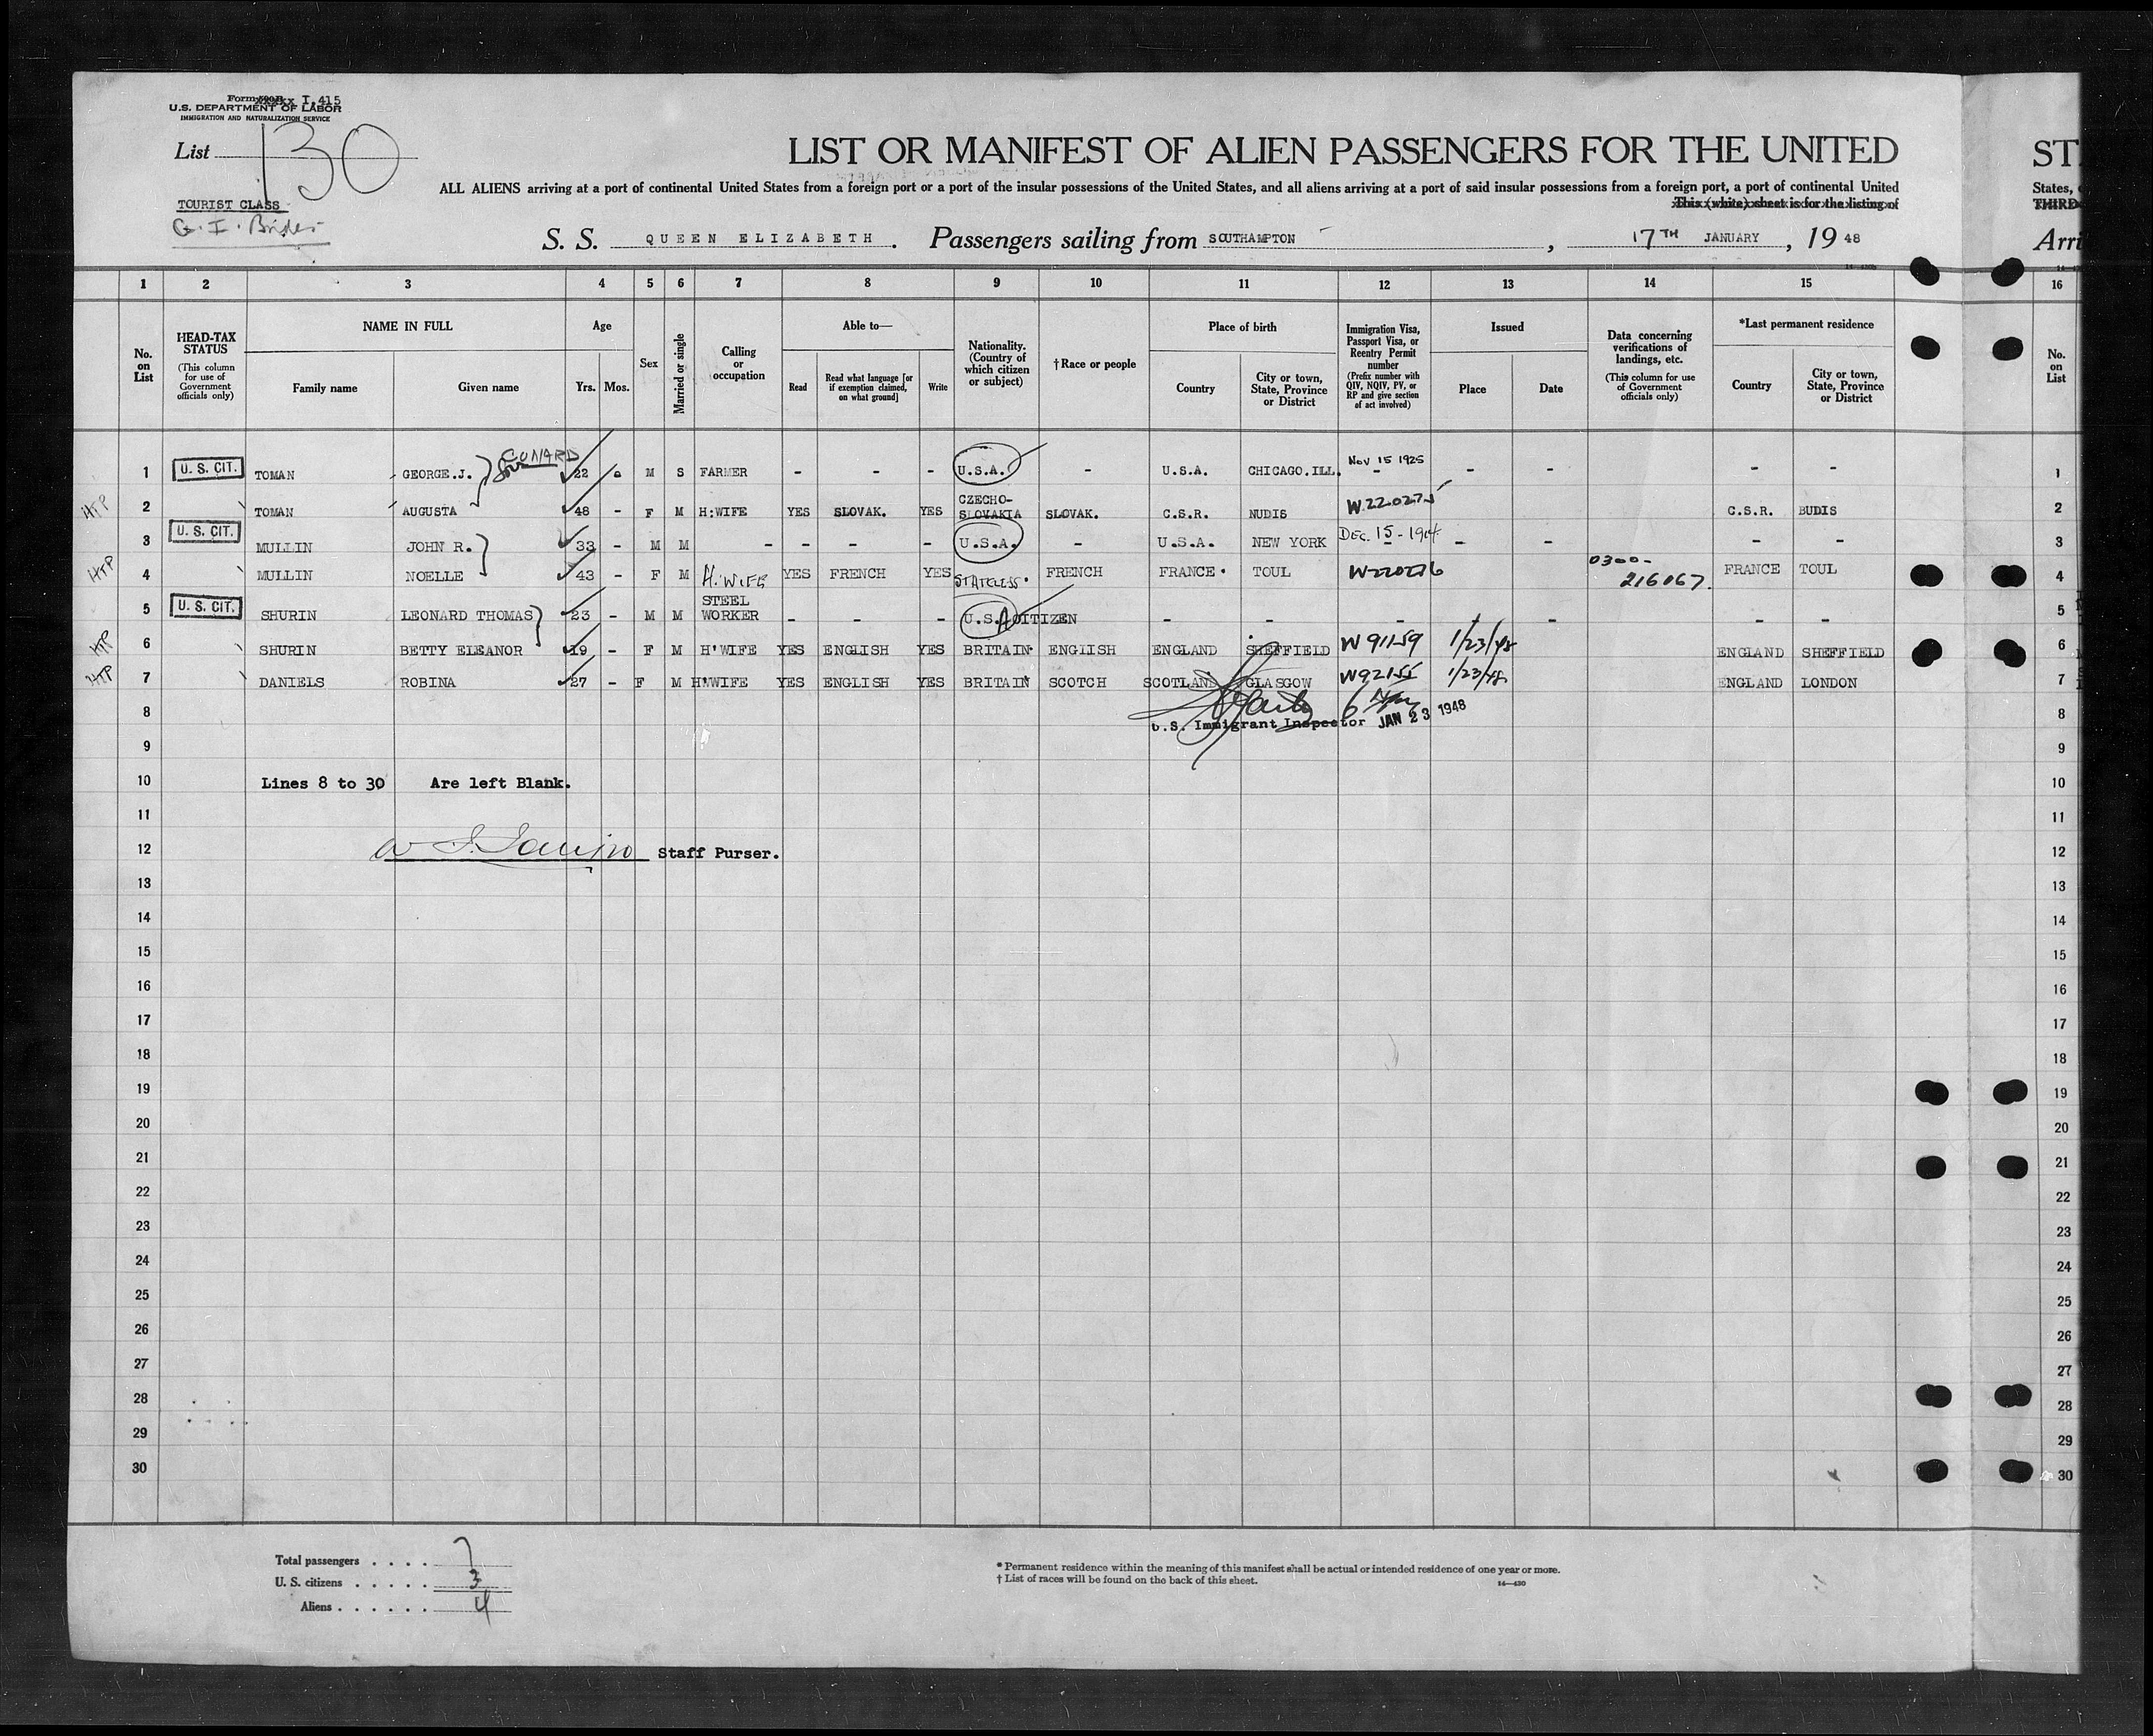 Form I.415
U.S. DEPARTMENT OF LABOR
IMMIGRATION AND NATURALIZATION SERVICE
List 130
TOURIST CLASS
G. I. Brides
LIST OR MANIFEST OF ALIEN PASSENGERS FOR THE UNITED
ALL ALIENS arriving at a port of continental United States from a foreign port or a port of the insular possessions of the United States, and all aliens arriving at a port of said insular possessions from a foreign port, a port of continental United
This (white) sheet is for the listing of
S. S. QUEEN ELIZABETH. Passengers sailing from SOUTHAMPTON, 17TH JANUARY, 19 48
ST
States,
THIRD
Arri
1 2 3 4 5 6 7 8 9 10 11 12 13 14 15 16
No. on List
HEAD-TAX STATUS (This column for use of Government officials only)
NAME IN FULL
Family name Given name
Age
Yrs. Mos.
Sex
Married or single
Calling or occupation
Able to—
Read
Read what language [or if exemption claimed, on what ground]
Write
Nationality. (Country of which citizen or subject)
†Race or people
Place of birth
Country
City or town, State, Province or District
Immigration Visa, Passport Visa, or Reentry Permit number (Prefix number with QIV, NQIV, PV, or RP and give section of act involved)
Issued
Place Date
Data concerning verifications of landings, etc. (This column for use of Government officials only)
*Last permanent residence
Country
City or town, State, Province or District
No. on List
1 U. S. CIT. TOMAN GEORGE.J. CUNARD 22 M S FARMER - - - U.S.A. - U.S.A. CHICAGO.ILL. Nov 15 1925 - - - - - 1
HTP 2 TOMAN AUGUSTA 48 - F M H:WIFE YES SLOVAK. YES CZECHO-SLOVAKIA SLOVAK. C.S.R. NUDIS W220275 C.S.R. BUDIS 2
3 U. S. CIT. MULLIN JOHN R. 33 - M M - - - - U.S.A. - U.S.A. NEW YORK DEC. 15 - 1914 - - - - 3
HTP 4 MULLIN NOELLE 43 - F M H. WIFE YES FRENCH YES STATELESS. FRENCH FRANCE. TOUL W220276 0300-216067. FRANCE TOUL 4
5 U. S. CIT. SHURIN LEONARD THOMAS 23 - M M STEEL WORKER - - - U.S.A CITIZEN - - - - - - - 5
HTP 6 SHURIN BETTY ELEANOR 19 - F M H'WIFE YES ENGLISH YES BRITAIN ENGLISH ENGLAND SHEFFIELD W91159 1/23/48 ENGLAND SHEFFIELD 6
HTP 7 DANIELS ROBINA 27 - F M H'WIFE YES ENGLISH YES BRITAIN SCOTCH SCOTLAND GLASGOW W92155 1/23/48 ENGLAND LONDON 7
8 U.S. Immigrant Inspector JAN 23 1948 8
9 9
10 Lines 8 to 30 Are left Blank. 10
11 11
12 Staff Purser. 12
13 13
14 14
15 15
16 16
17 17
18 18
19 19
20 20
21 21
22 22
23 23
24 24
25 25
26 26
27 27
28 28
29 29
30 30
Total passengers . . . . 7
U. S. citizens . . . . . 3
Aliens . . . . . . 4
* Permanent residence within the meaning of this manifest shall be actual or intended residence of one year or more.
† List of races will be found on the back of this sheet.
14—430